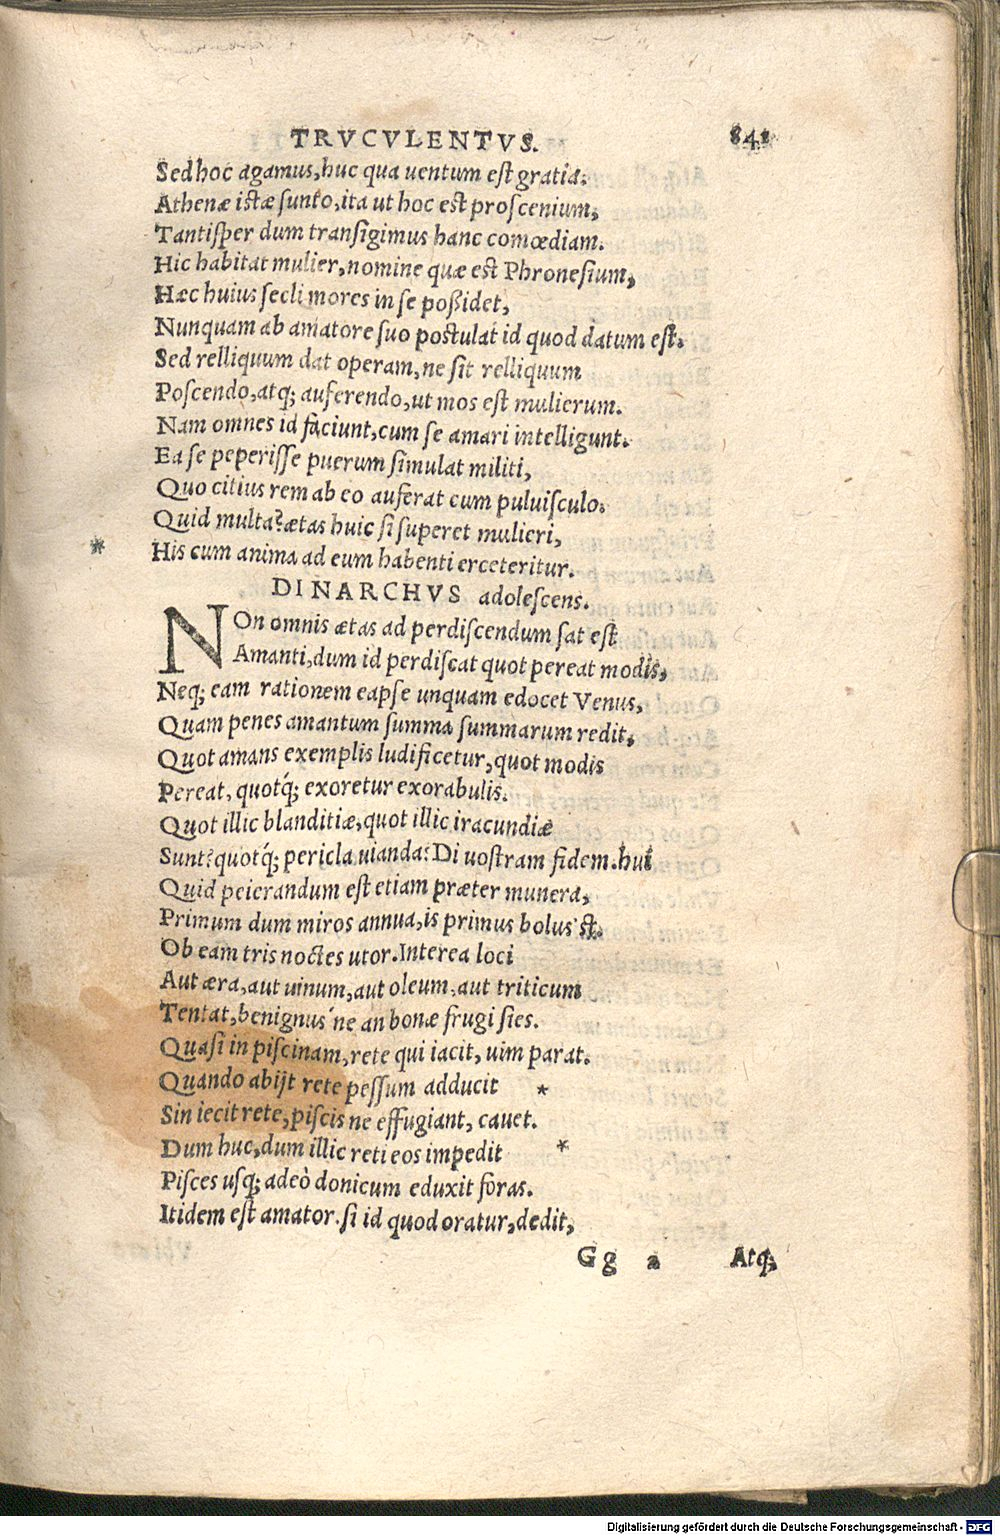 TRVCVLENTVS. 841
Sed hoc agamus, huc qua uentum est gratia.
Athenæ istæ sunto, ita ut hoc est proscenium,
Tantisper dum transigimus hanc comœdiam.
Hic habitat mulier, nomine quæ est Phronesium,
Hæc huius secli mores in se poßidet,
Nunquam ab amatore suo postulat id quod datum est.
Sed relliquum dat operam, ne sit relliquum
Poscendo, atq; auferendo, ut mos est mulierum.
Nam omnes id faciunt, cum se amari intelligunt.
Ea se peperisse puerum simulat militi,
Quo citius rem ab eo auferat cum puluisculo.
Quid multa? ætas huic si superet mulieri,
* His cum anima ad eum habenti erceteritur.
DINARCHVS adolescens.
NOn omnis ætas ad perdiscendum sat est
Amanti, dum id perdiscat quot pereat modis,
Neq; eam rationem eapse unquam edocet Venus,
Quam penes amantum summa summarum redit,
Quot amans exemplis ludificetur, quot modis
Pereat, quotq́; exoretur exorabulis.
Quot illic blanditiæ, quot illic iracundiæ
Sunt? quotq́; pericla uianda? Di uostram fidem. hui
Quid peierandum est etiam præter munera,
Primum dum miros annua, is primus bolus'st.
Ob eam tris noctes utor. Interea loci
Aut æra, aut uinum, aut oleum, aut triticum
Tentat, benignus'ne an bonæ frugi sies.
Quasi in piscinam, rete qui iacit, uim parat.
Quando abijt rete pessum adducit *
Sin iecit rete, piscis ne effugiant, cauet.
Dum huc, dum illic reti eos impedit *
Pisces usq; adeò donicum eduxit foras.
Itidem est amator. si id quod oratur, dedit,
Gg a Atq;
Digitalisierung gefördert durch die Deutsche Forschungsgemeinschaft - DFG